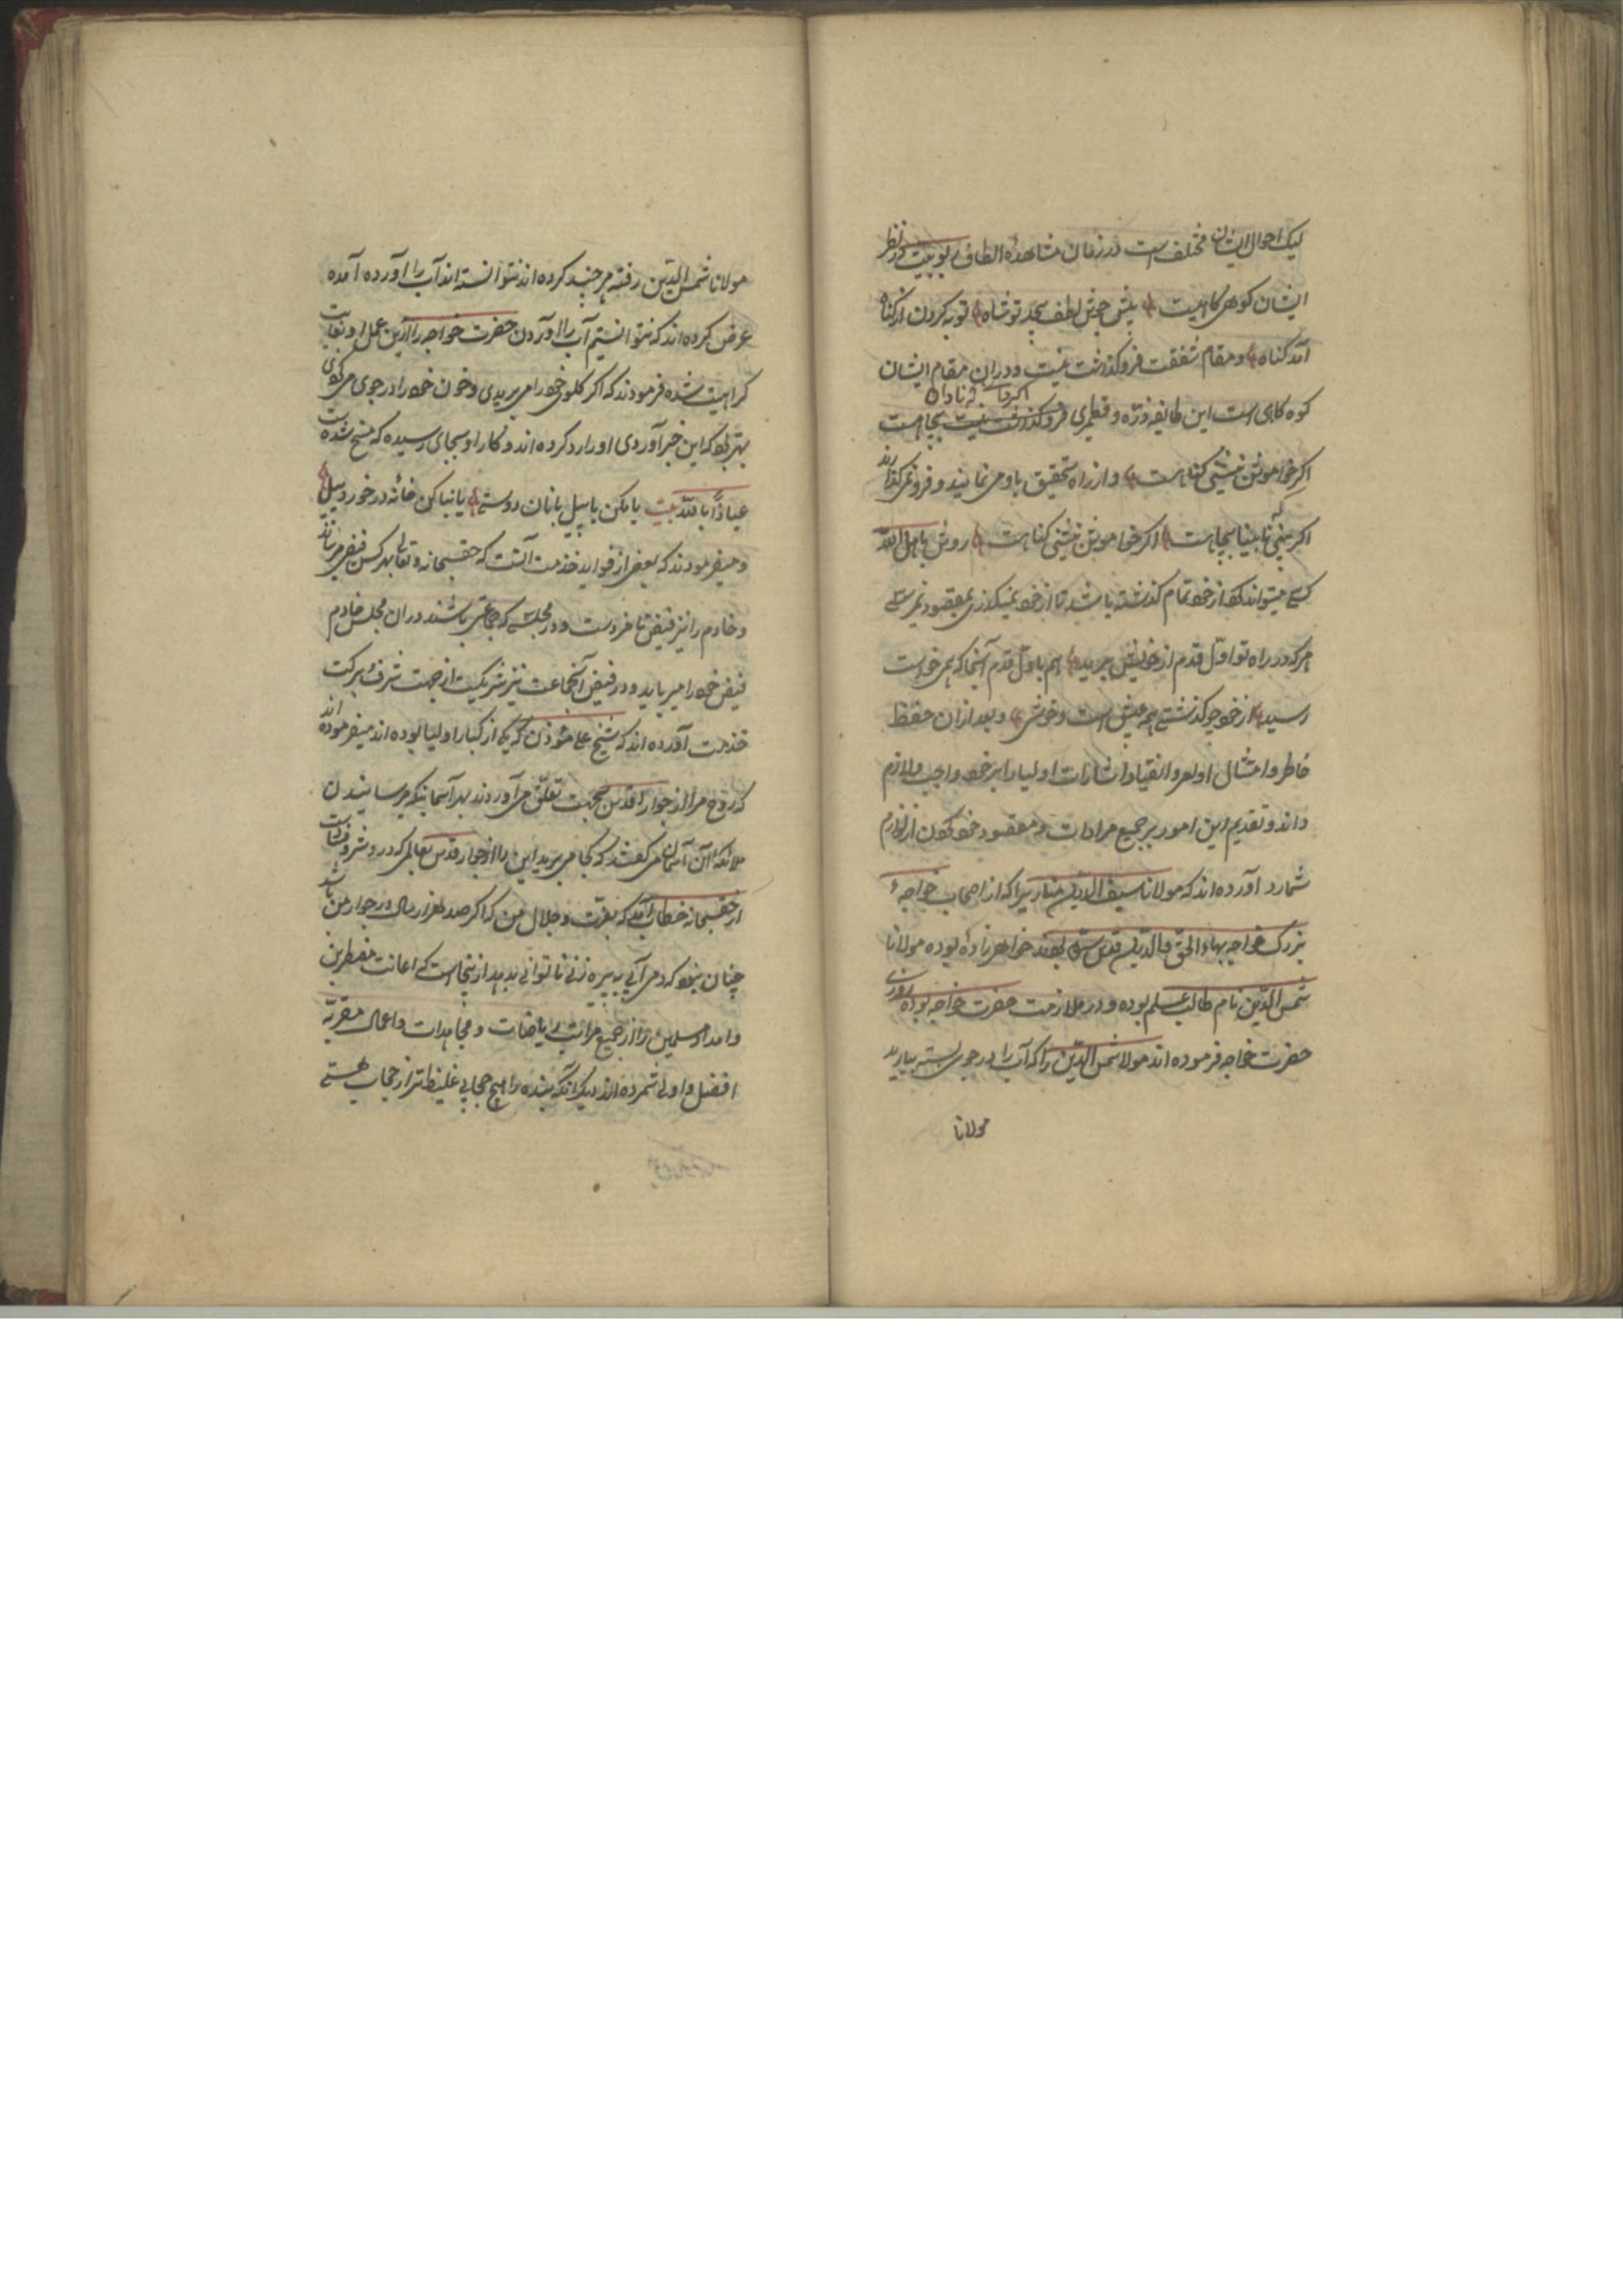 لیک احوال ایشان مختلف است در زمان مشاهدهٔ الطاف ربوبیت در نظر
ایشان کوهی کاهیست پیش جوش لطف بیحد تو شاه توبه کردن از گناه
آمد گناه و مقام شفقت فروگذاشت نیست و در ان مقام ایشان
کوه کاهی است این طایفه ذرّه و قطمیری فروگذاشت نیست بیجاست
اگر خواموش نشینی کناه است و از راه تحقیق باو می نمایند و فرو نمی کذارند
اکر بینی که نابینا بچاه است اکر خواموش نشینی کناه است روش باهل الله
کسی میتواند که از خود تمام کذشته باشد تا از خود نمیکذری بمقصود نمیرسی
هر که در راه تو اوّل قدم از خویش برید هم باوّل قدم آنجا که همی خواست
رسید از خود چو کذشتی همه عیش است و خوشی و بعد از ان حفظ
خاطر و امتثال اوامر و انقیاد اشارات اولیا را بر خود واجب و لازم
داند و تقدیم این امور بر جمیع مرادات و مقصود خود کون از لوازم
شمارد آورده اند که مولانا سیف الدّین مناری را که از اصحاب خواجهٔ
بزرک خواجه بهاء الحق والدّین قدس سرّه بودند خواهرزادهٔ بوده مولانا
شمس الدّین نام طالب علم بوده و در ملازمت حضرت خواجه بوده روزی
حضرت خواجه فرموده اند مولانا شمس الدّین را که آب را در جوی بسته بیارید
مولانا
مولانا شمس الدّین رفته هر چند کرده اند نتوانسته اند آب را آورده آمده
عرض کرده اند که نتوانستیم آب را آوردن حضرت خواجه را ازین عمل او بغایت
کراهیت شده فرمودند که اکر کلوی خود را می بریدی و خون خود را در جوی می کردی
بهتر بود که این خبر آوردی او را رد کرده اند و کار او بجای رسیده که مسخ شده است
عیاذاً بالله بیت یا مکن با پیل بانان دوستی یا بنا کن خانه در خورد پیل
و میفرمودند که بعضی از فواید خدمت آنست که حقسبحانه و تعالی بهر کس فیض میرساند
و خادم را نیز فیض نامزد است و در مجلسی که جماعتی باشند دران مجلس خادم
فیض خود را میرباید و در فیض آنجماعت نیز شریکیست از جهت شرف و برکت
خدمت آورده اند که شیخ علی مؤذن که یکی از کبار اولیا بوده اند میفرموده اند
که روح مرا از جوار اقدس بجهت تعلّق می آوردند بهر آسمانیکه میرسانیدن
ملائکهٔ آن آسمان می کفتند که کجا می برید این را از جوار قدس بعالمی که در و شر و فساد است
از حقسبحانه خطاب آمد که بعزّت و جلال من که اکر صد هزار سال در جوار من باشد
چنان نبود که دمی آبی به پیره زنی ناتوانی بدهد از ینجاست که اعانت مضطرین
و امداد مسلمین را از جمیع مراتب ریاضات و مجاهدات و اعمال مقربّه
افضل و اولی شمرده اند دیکر آنکه بنده را هیچ حجابی غلیظ تر از حجاب هستی